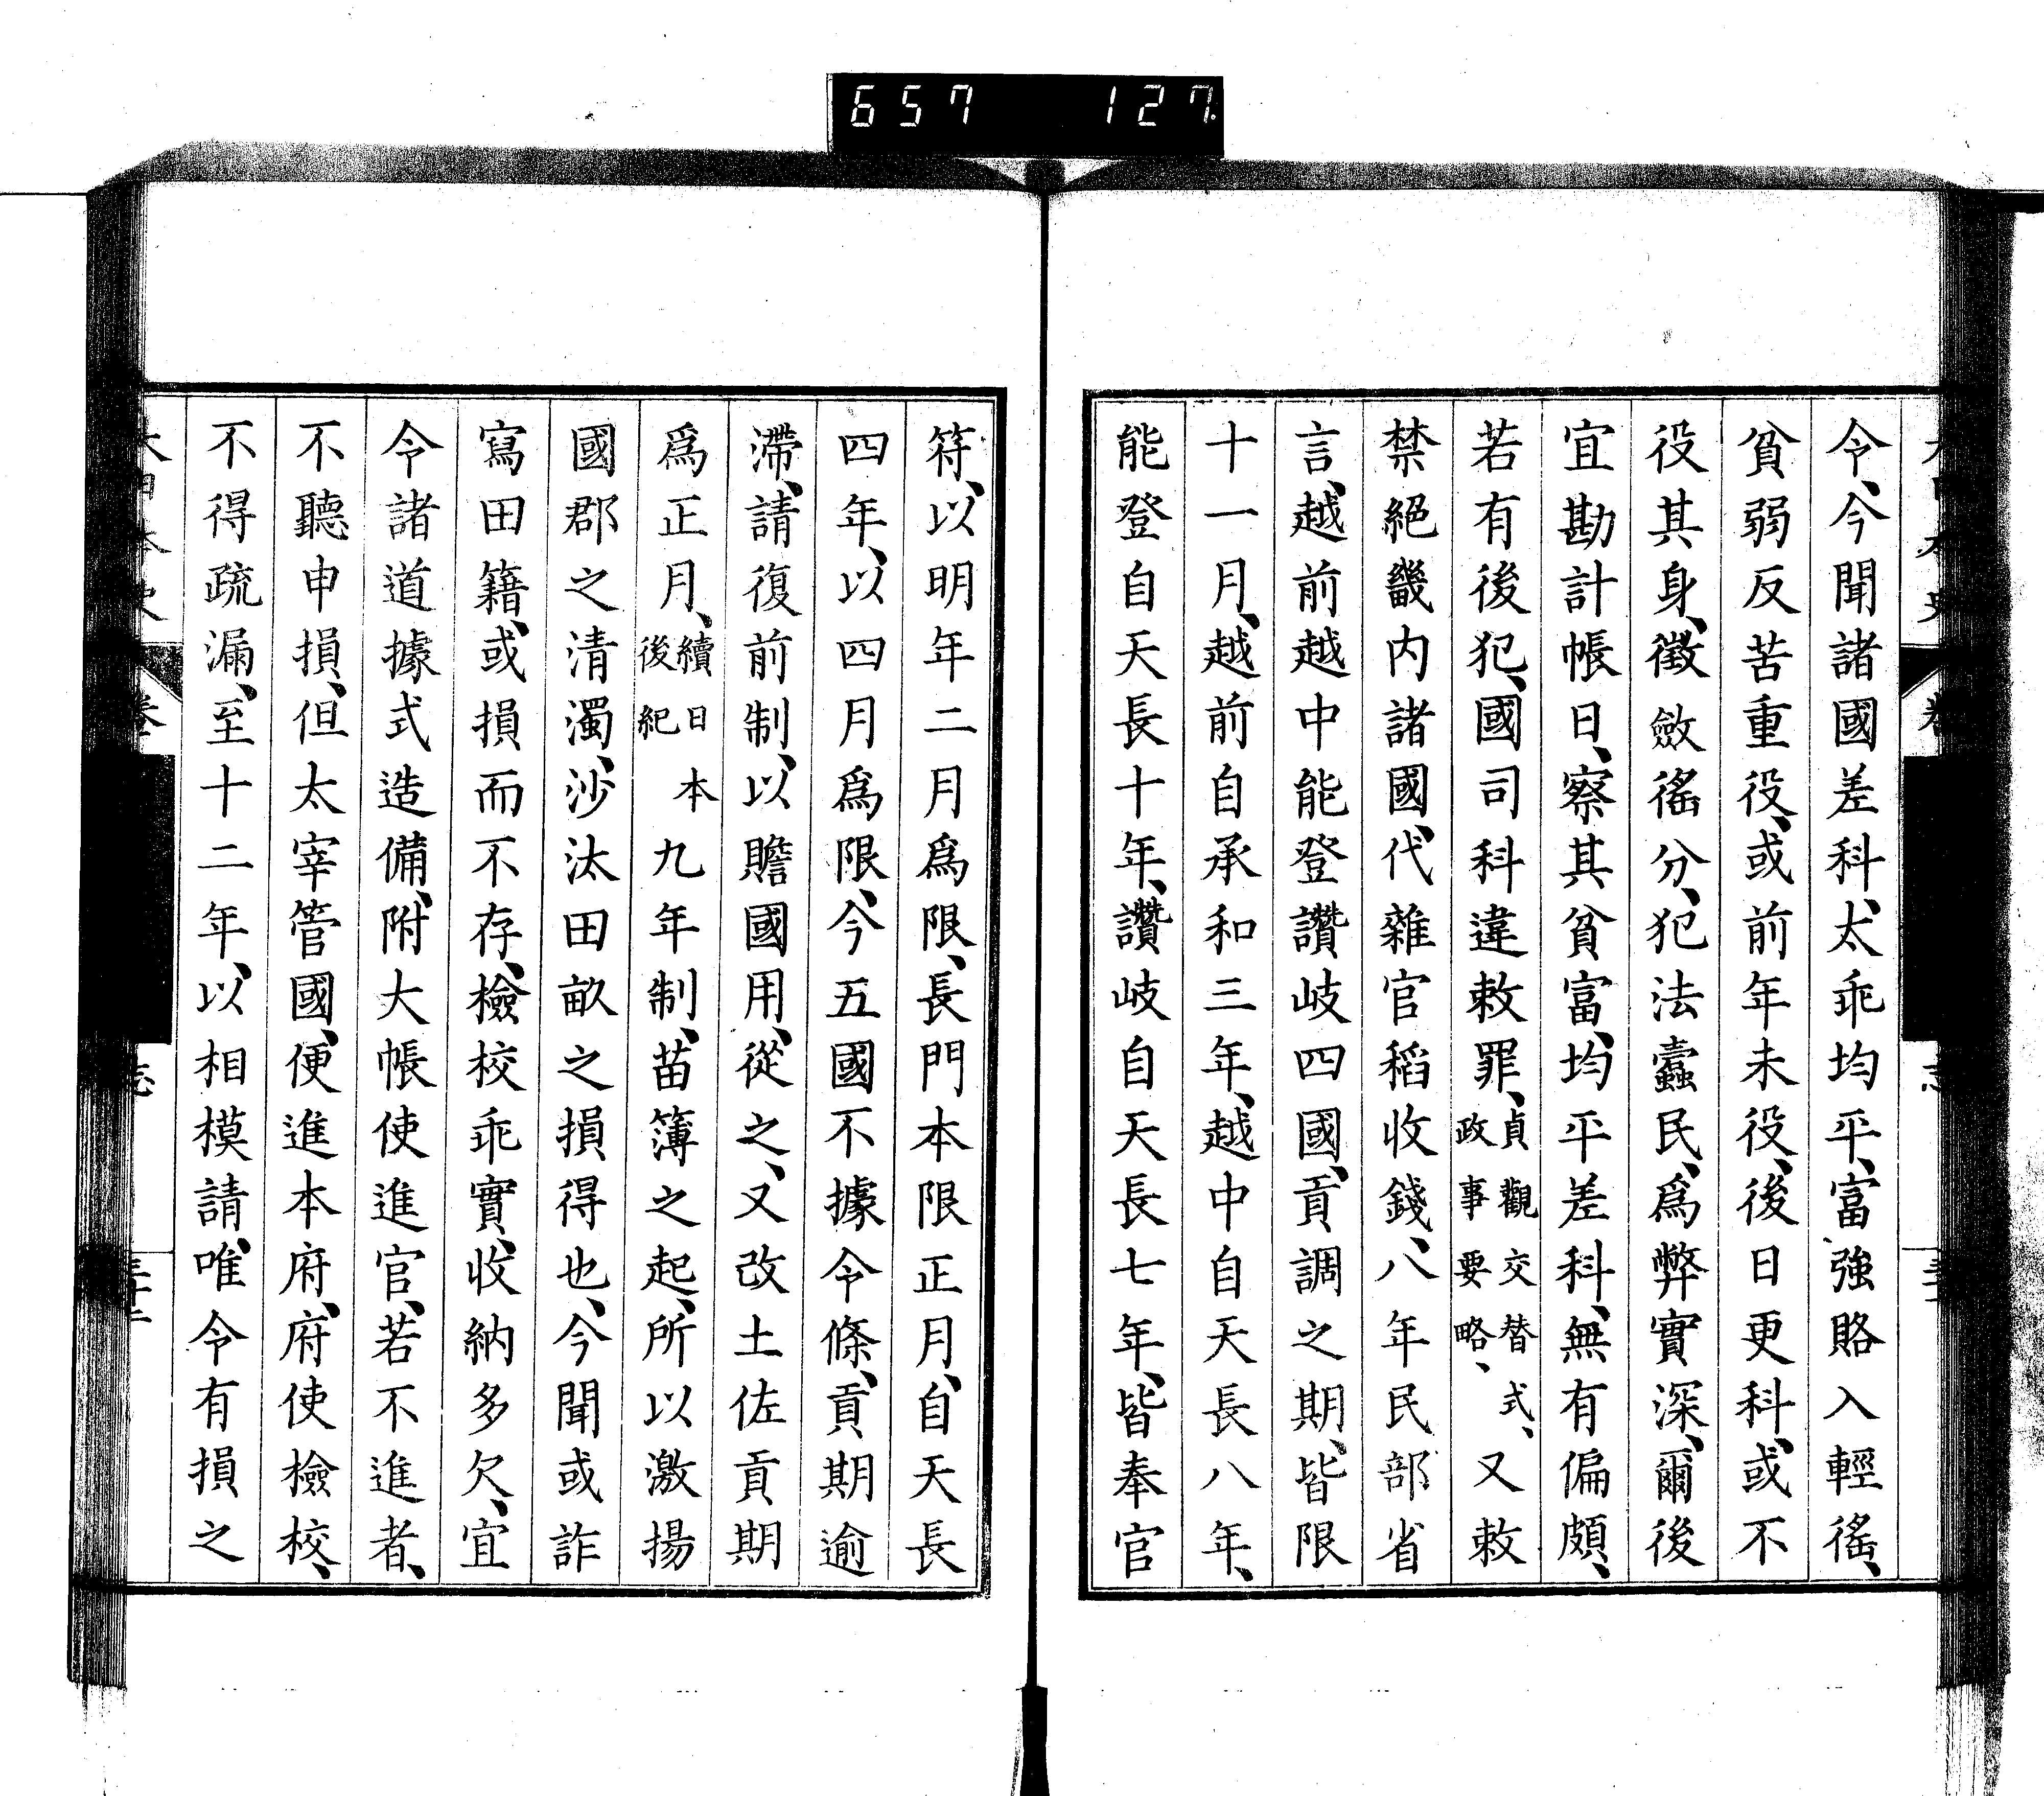 657 127
令、今聞諸國差科、太乖均平、富強賂入輕徭、
貧弱反苦重役、或前年未役、後日更科、或不
役其身、徵斂徭分、犯法蠹民、爲弊實深、爾後
宜勘計帳日、察其貧富、均平差科、無有偏頗、
若有後犯、國司科違敕罪、貞觀交替式、政事要略、又敕
禁絕畿內諸國、代雜官稻收錢、八年民部省
言、越前越中能登讚岐四國、貢調之期、皆限
十一月、越前自承和三年、越中自天長八年、
能登自天長十年、讚岐自天長七年、皆奉官
符、以明年二月爲限、長門本限正月、自天長
四年、以四月爲限、今五國不據令條、貢期逾
滯、請復前制、以贍國用、從之、又改土佐貢期
爲正月、續日本後紀九年制、苗簿之起、所以激揚
國郡之清濁、沙汰田畝之損得也、今聞或詐
寫田籍、或損而不存、檢校乖實、收納多欠、宜
令諸道據式造備、附大帳使進官、若不進者、
不聽申損、但太宰管國、便進本府、府使檢校、
不得疏漏、至十二年、以相模請、唯令有損之